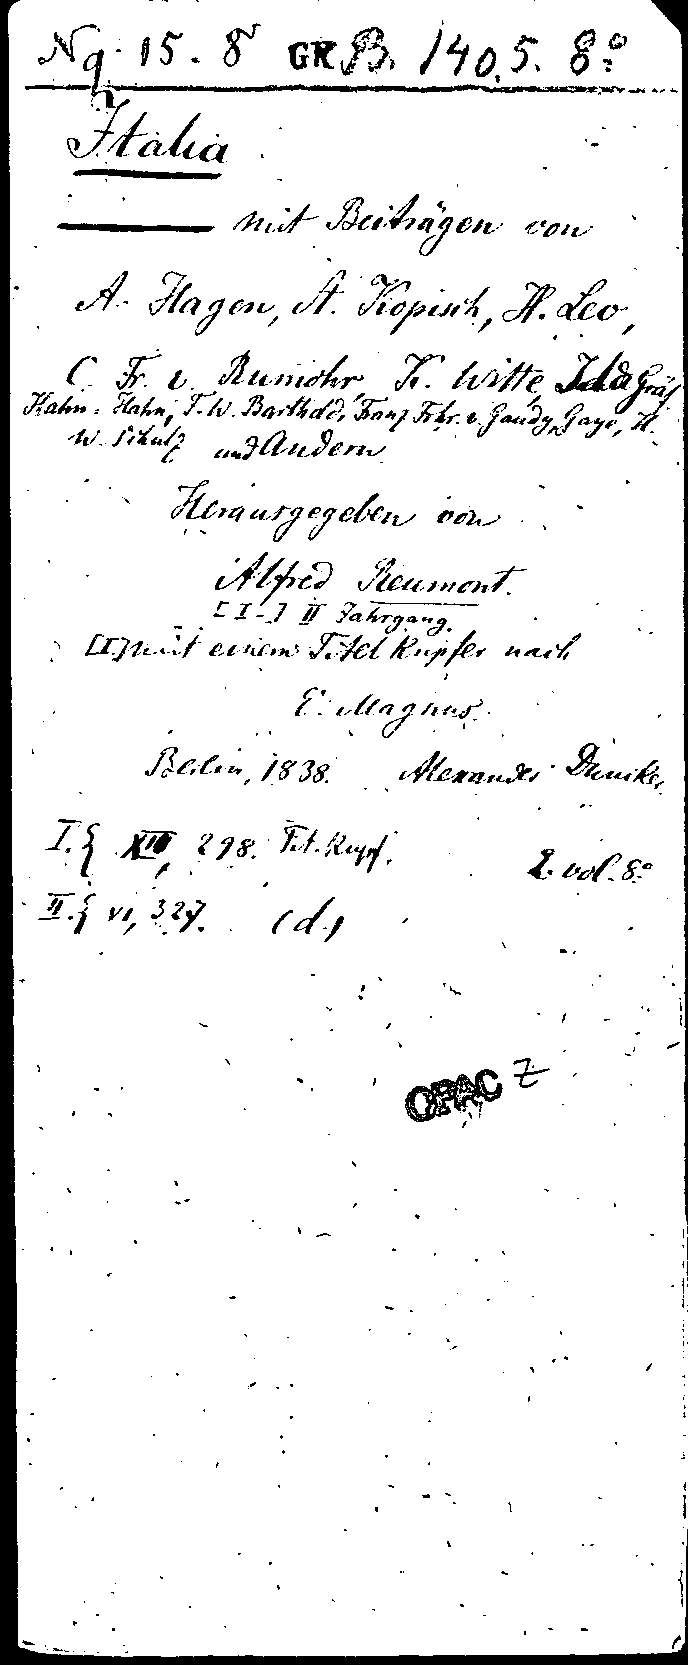 Ng. 15. 8° GR B. 140. 5. 8°
Italia
—— mit Beiträgen von
A. Hagen, A. Kopisch, H. Leo,
C. Fr. v. Rumohr, K. Witte, Ida Gräf
Hahn-Hahn, F. W. Barthold, Franz Frhr. v. Gaudy, Gaye, H.
W. Schulz und Andern
Herausgegeben von
Alfred Reumont.
[I-] II Jahrgang.
[I] mit einem Titel Kupfer nach
E. Magnus.
Berlin, 1838. Alexander Duncker
I. { XIII, 298. Tit. Kupf. 2. vol. 8°
II. { VI, 327. (d.)
OPAC Z